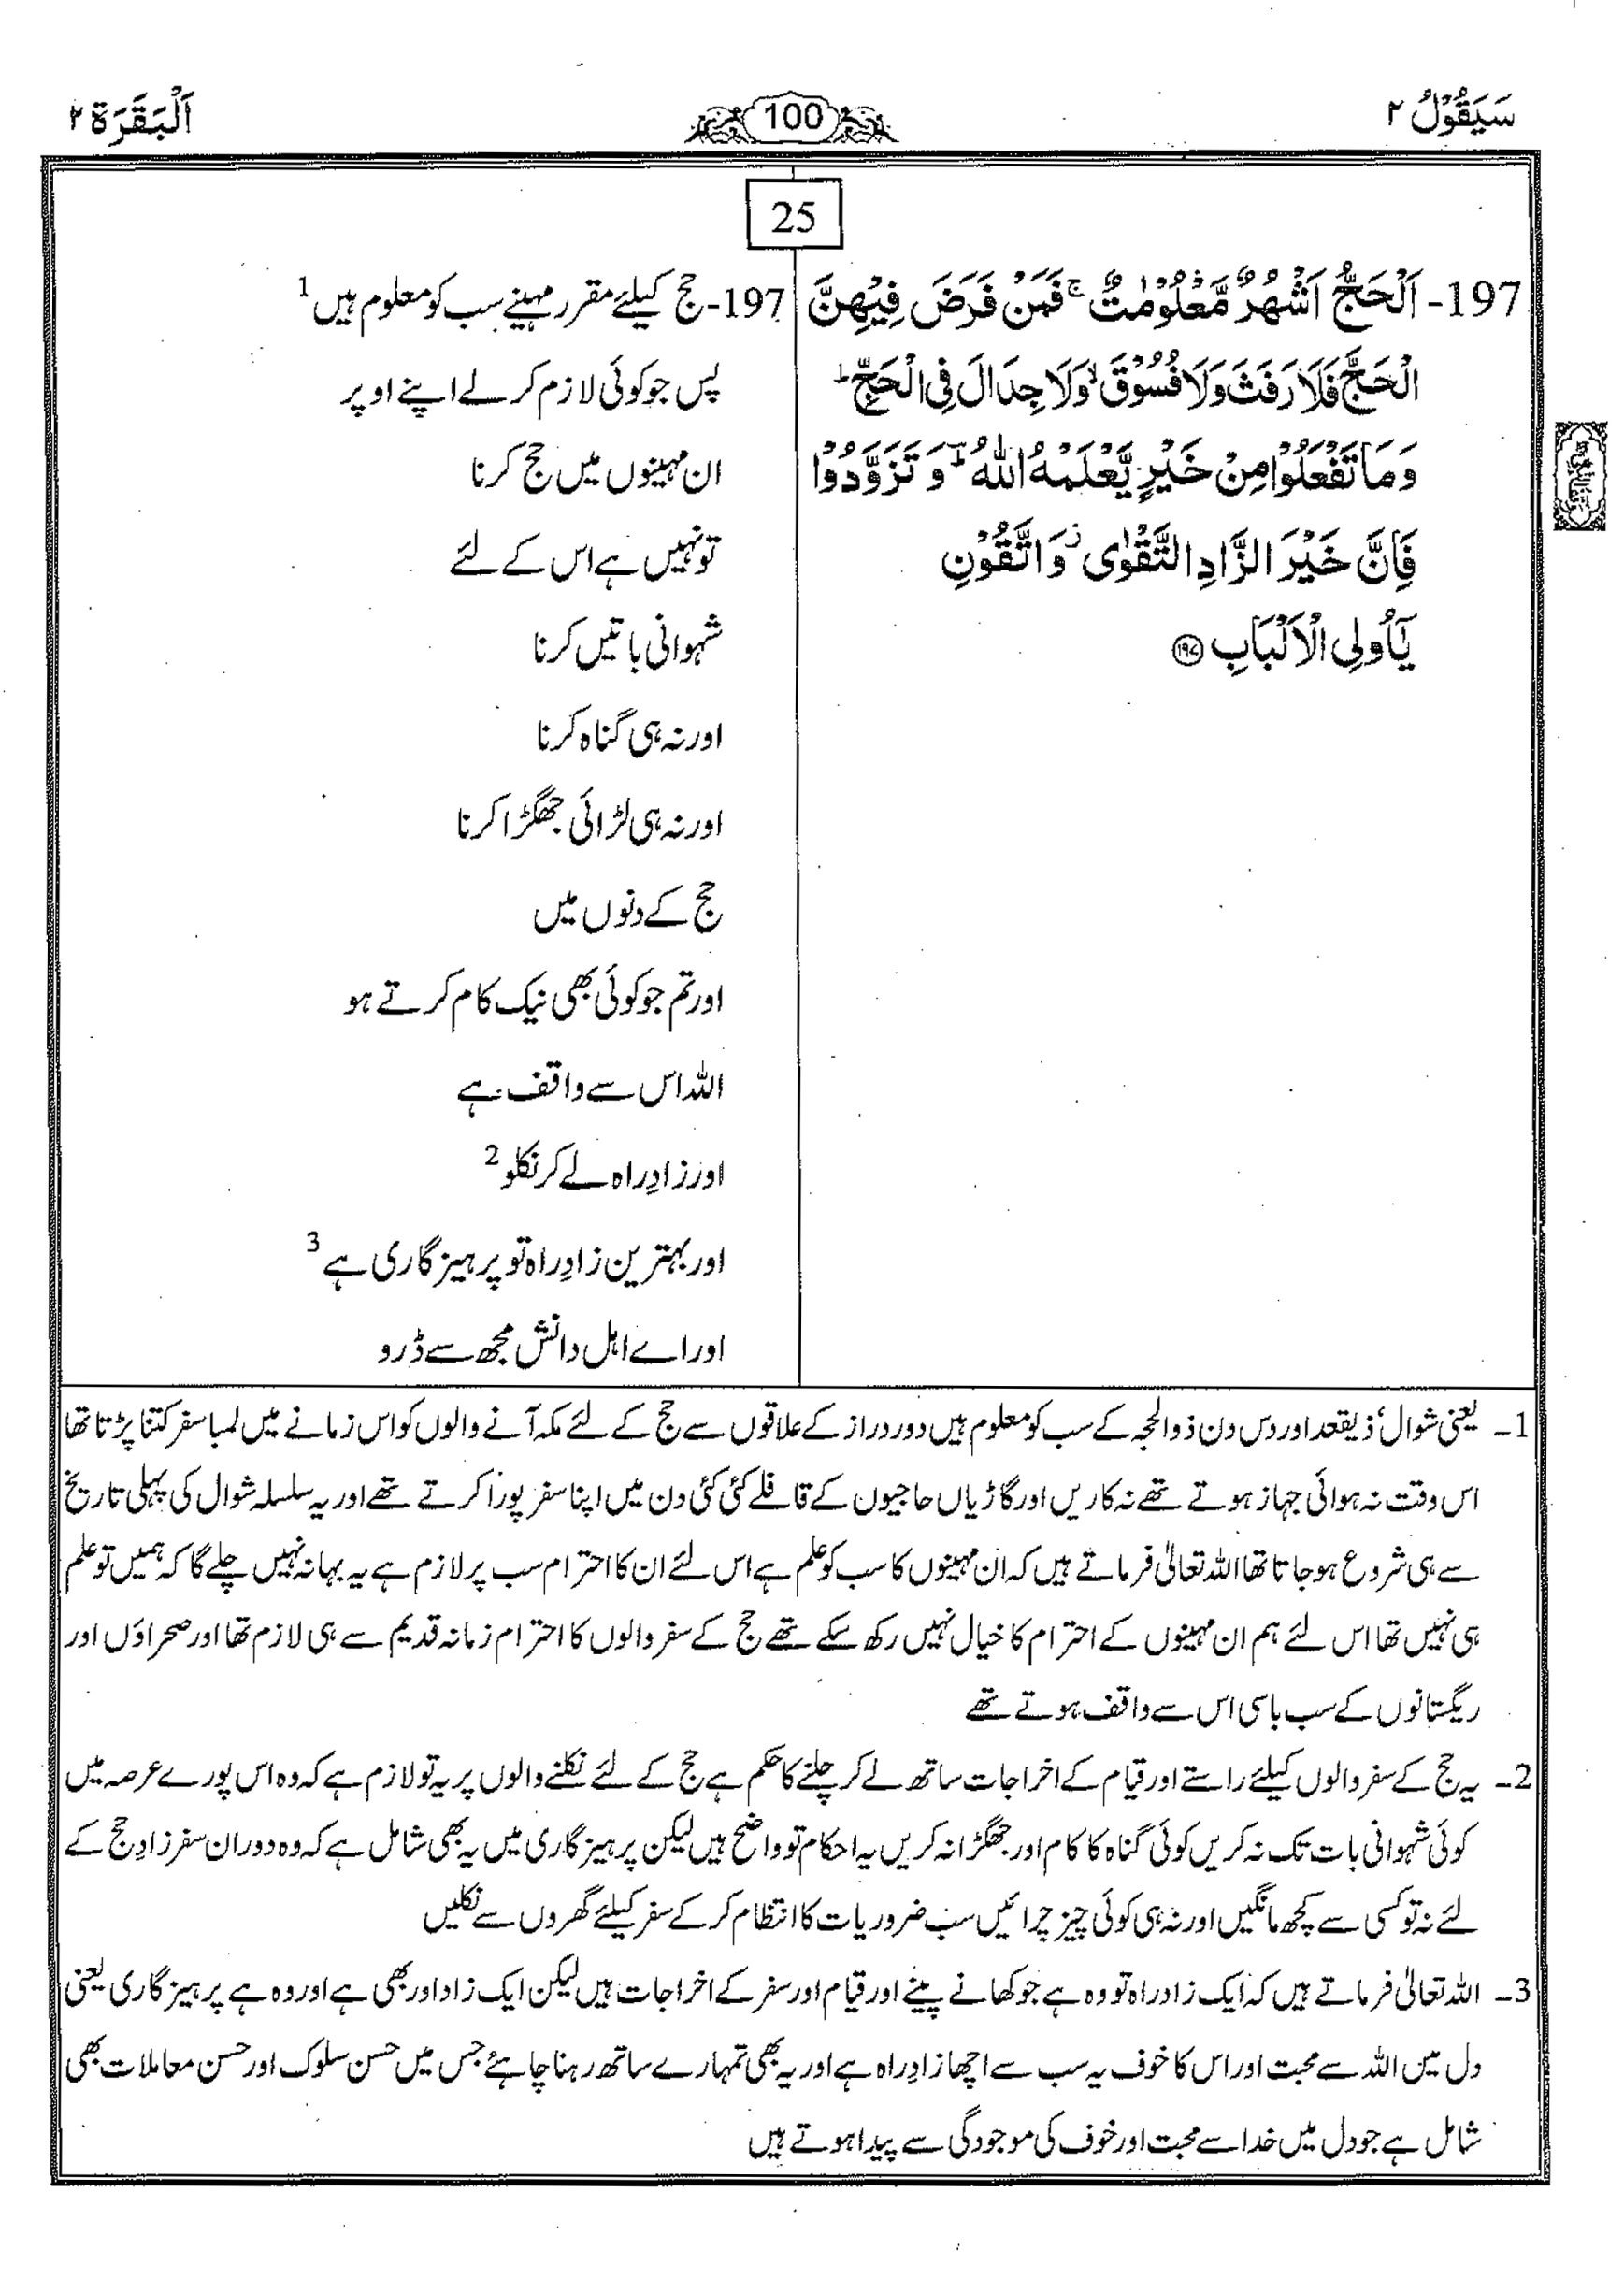 سَيَقُوْلُ ۲
100
اَلْبَقَرَة ۲
25
197- اَلْحَجُّ اَشْهُرٌ مَّعْلُوْمٰتٌ ۚ فَمَنْ فَرَضَ فِيْهِنَّ
الْحَجَّ فَلَا رَفَثَ وَلَا فُسُوْقَ ۙ وَلَا جِدَالَ فِي الْحَجِّ ؕ
وَمَا تَفْعَلُوْا مِنْ خَيْرٍ يَّعْلَمْهُ اللّٰهُ ؕؔ وَتَزَوَّدُوْا
فَاِنَّ خَيْرَ الزَّادِ التَّقْوٰى ۫ وَاتَّقُوْنِ
يٰٓاُولِي الْاَلْبَابِ ۝۱۹۷
197- حج کیلئے مقرر مہینے سب کو معلوم ہیں 1
پس جو کوئی لازم کر لے اپنے اوپر
ان مہینوں میں حج کرنا
تو نہیں ہے اس کے لئے
شہوانی باتیں کرنا
اور نہ ہی گناہ کرنا
اور نہ ہی لڑائی جھگڑا کرنا
حج کے دنوں میں
اور تم جو کوئی بھی نیک کام کرتے ہو
اللہ اس سے واقف ہے
اور زادِ راہ لے کر نکلو 2
اور بہترین زادِ راہ تو پرہیز گاری ہے 3
اور اے اہل دانش مجھ سے ڈرو
1- یعنی شوال، ذیقعد اور دس دن ذوالحجہ کے سب کو معلوم ہیں دور دراز کے علاقوں سے حج کے لئے مکہ آنے والوں کو اس زمانے میں لمبا سفر کتنا پڑتا تھا
اس وقت نہ ہوائی جہاز ہوتے تھے نہ کاریں اور گاڑیاں حاجیوں کے قافلے کئی کئی دن میں اپنا سفر پورا کرتے تھے اور یہ سلسلہ شوال کی پہلی تاریخ
سے ہی شروع ہو جاتا تھا اللہ تعالیٰ فرماتے ہیں کہ ان مہینوں کا سب کو علم ہے اس لئے ان کا احترام سب پر لازم ہے یہ بہانہ نہیں چلے گا کہ ہمیں تو علم
ہی نہیں تھا اس لئے ہم ان مہینوں کے احترام کا خیال نہیں رکھ سکے تھے حج کے سفر والوں کا احترام زمانہ قدیم سے ہی لازم تھا اور صحراؤں اور
ریگستانوں کے سب باسی اس سے واقف ہوتے تھے
2- یہ حج کے سفر والوں کیلئے راستے اور قیام کے اخراجات ساتھ لے کر چلنے کا حکم ہے حج کے لئے نکلنے والوں پر یہ تو لازم ہے کہ وہ اس پورے عرصہ میں
کوئی شہوانی بات تک نہ کریں کوئی گناہ کا کام اور جھگڑا نہ کریں یہ احکام تو واضح ہیں لیکن پرہیز گاری میں یہ بھی شامل ہے کہ وہ دوران سفر زادِ حج کے
لئے نہ تو کسی سے کچھ مانگیں اور نہ ہی کوئی چیز چرائیں سب ضروریات کا انتظام کر کے سفر کیلئے گھروں سے نکلیں
3- اللہ تعالیٰ فرماتے ہیں کہ ایک زادراہ تو وہ ہے جو کھانے پینے اور قیام اور سفر کے اخراجات ہیں لیکن ایک زاد اور بھی ہے اور وہ ہے پرہیز گاری یعنی
دل میں اللہ سے محبت اور اس کا خوف یہ سب سے اچھا زادِ راہ ہے اور یہ بھی تمہارے ساتھ رہنا چاہئے جس میں حسن سلوک اور حسن معاملات بھی
شامل ہے جو دل میں خدا سے محبت اور خوف کی موجودگی سے پیدا ہوتے ہیں